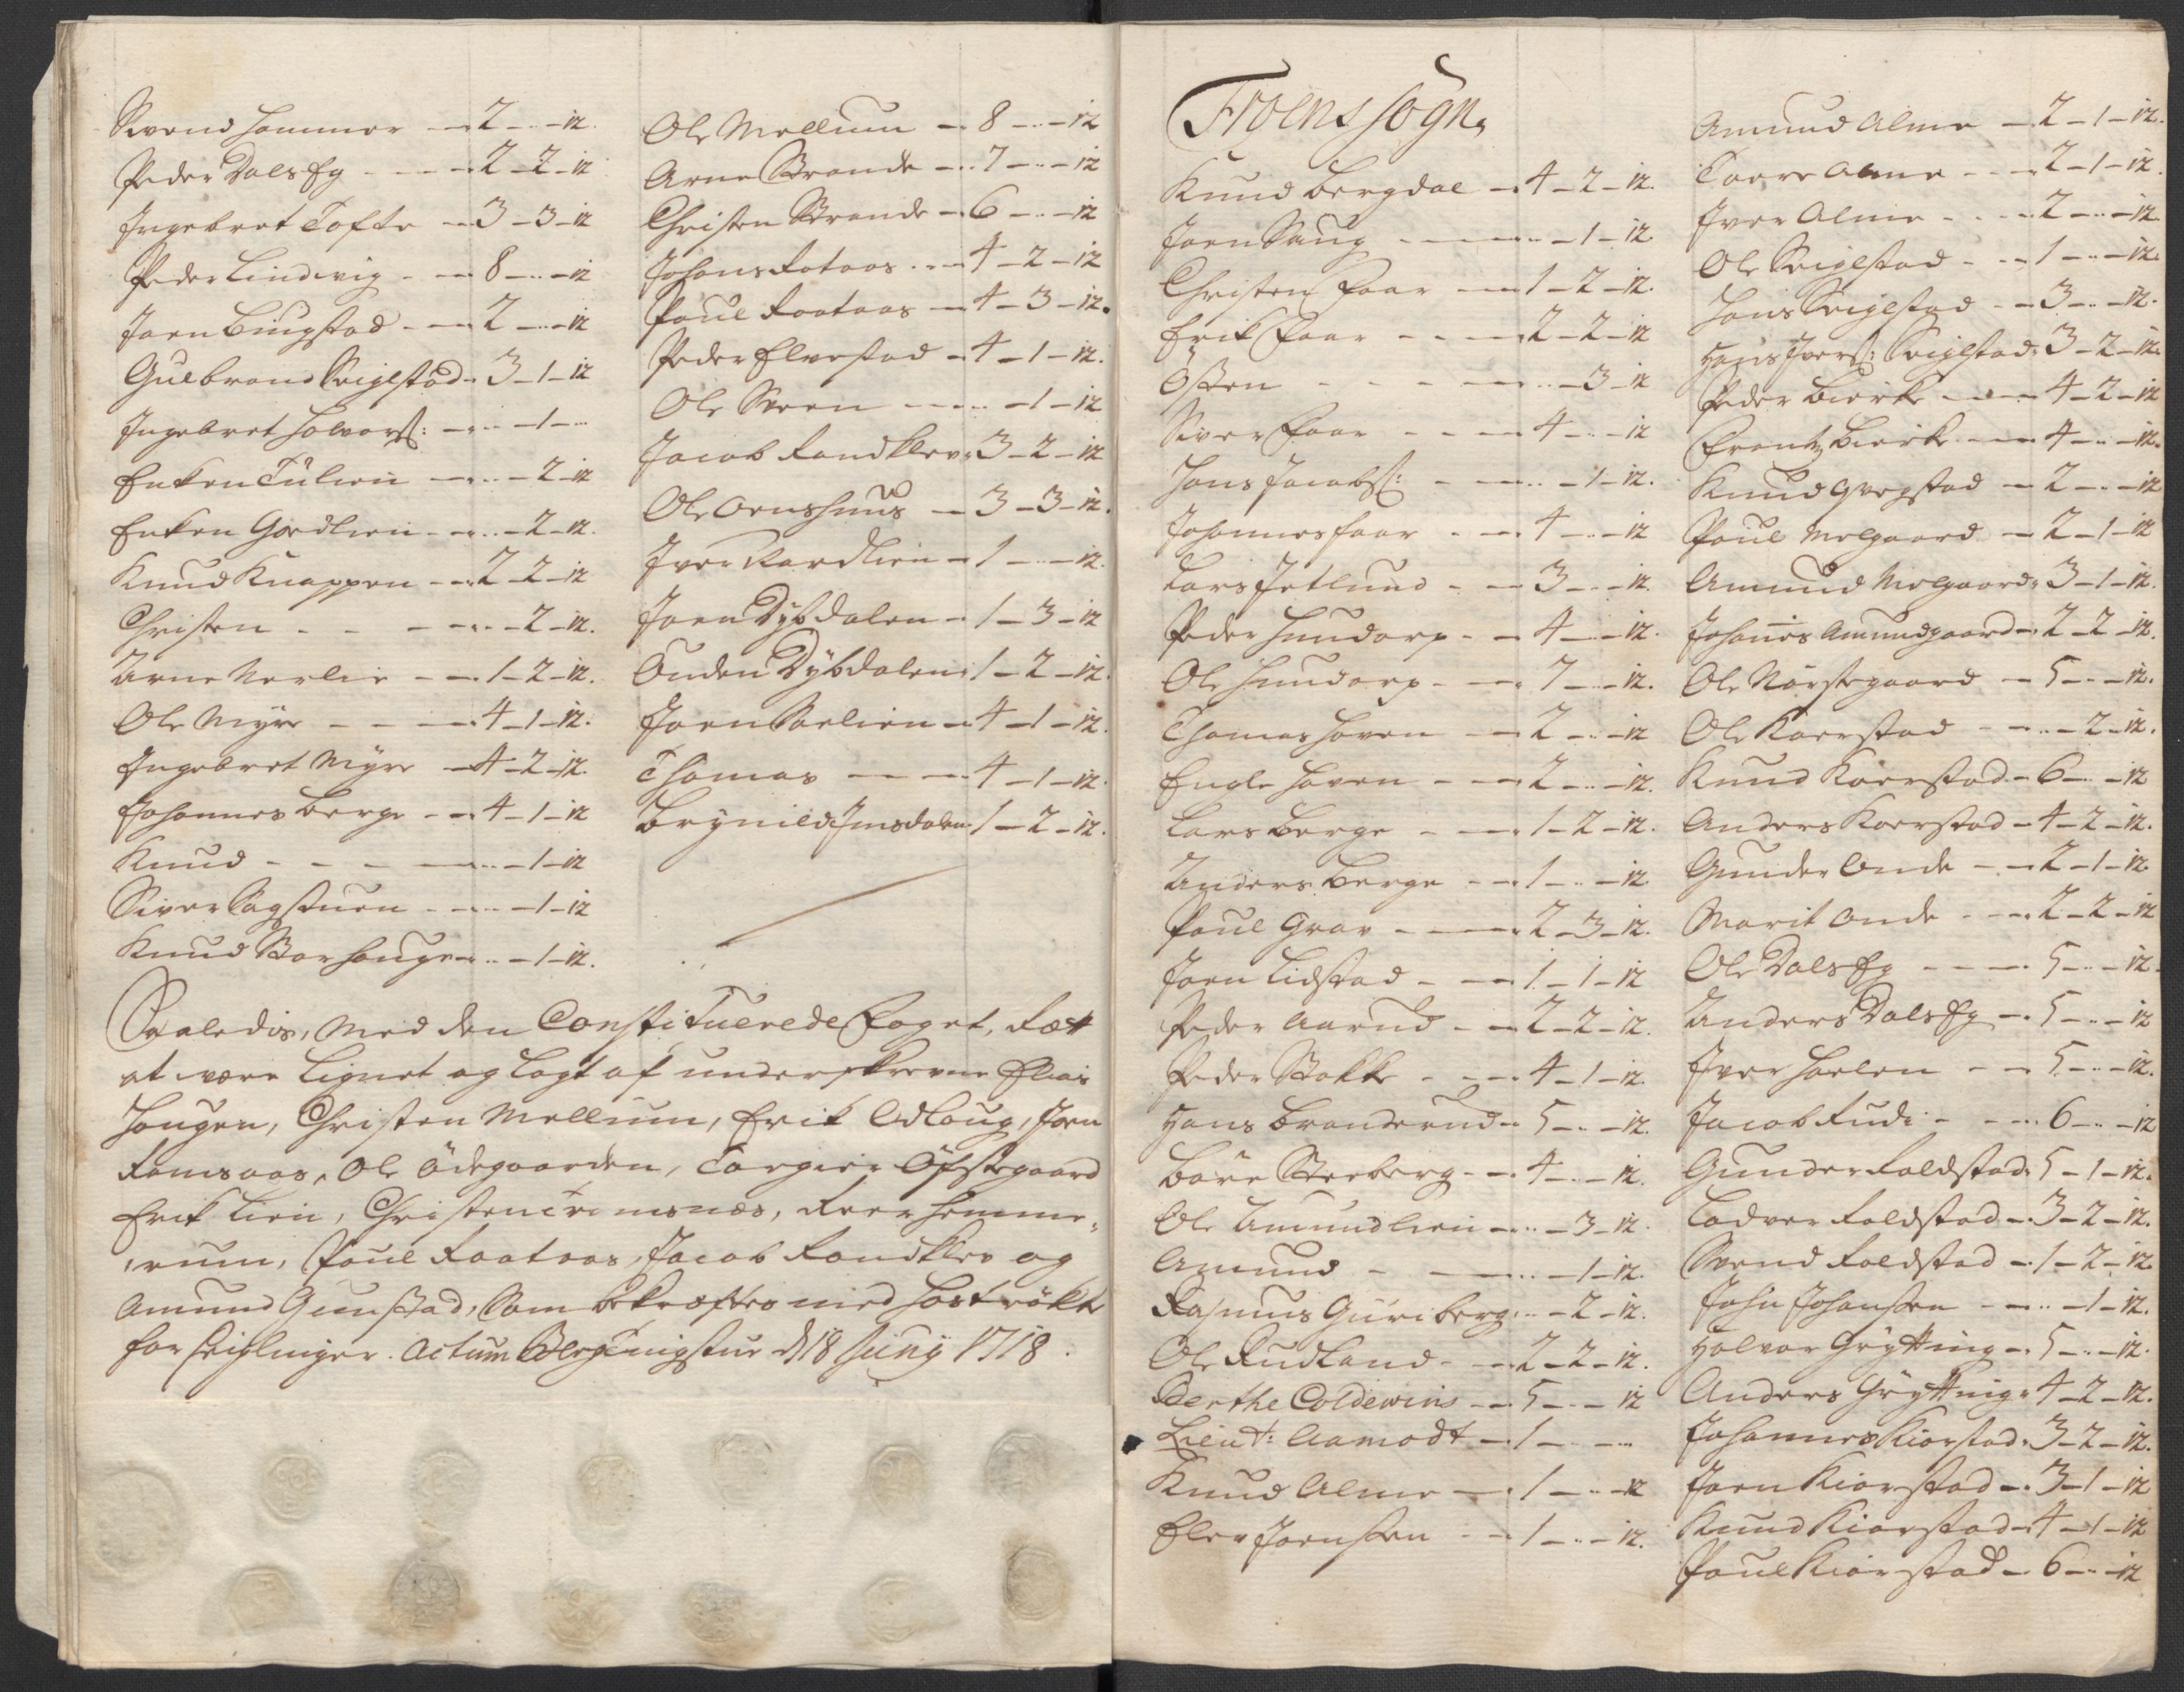 Svend Hammer — 2 - .. - 12.
Peder Dalseg — 2 - 2 - 12
Ingebret Tofte — 3 - 3 - 12
Peder Lindvig — 8 - .. - 12
Joen Bingstad — 2 - .. - 12
Gulbrand Seigelstad - 3 - 1 - 12
Ingebret Halvorß: — .. - 1 - ..
Enken Tulien — .. - 2 - 12
Enken Grødlien — .. - 2 - 12.
Knud Knappen — 2 - 2 - 12
Christen — .. - 2 - 12.
Arne Nerlie — 1 - 2 - 12.
Ole Myre — 4 - 1 - 12.
Ingebret Myre — 4 - 2 - 12.
Johannes Berge — 4 - 1 - 12
Knud — .. - 1 - 12
Siver Sagstuen — .. - 1 - 12
Knud Storhauge — .. - 1 - 12.
Ole Mellum — 8 - .. - 12
Arne Strande — 7 - .. - 12
Christen Strande — 6 - .. - 12
Johans Rotaas — 4 - 2 - 12
Poul Raataas — 4 - 3 - 12.
Peder Elvestad — 4 - 1 - 12.
Ole Sveen — .. - 1 - 12
Jacob Randklev - 3 - 2 - 12
Ole Ornshuus — 3 - 3 - 12.
Iver Nordlien — 1 - .. - 12.
Joen Dybdalen — 1 - 3 - 12
Ouden Dybdalen - 1 - 2 - 12.
Joen Sørlien — 4 - 1 - 12.
Thomas — 4 - 1 - 12.
Brynild Imsdalen - 1 - 2 - 12.
Saaledis, med den Constituerede Foget, Rætt
at være Lignet og lagt af underskrevne Elias
Hougen, Christen Mellum, Erik Odloug, Joen
Ramsaas, Ole Ødegaarden, Torgier Øfstegaard
Erik Lien, Christen Tromsnæs, Reer Hemme,,
,,rum, Poul Raataas, Jacob Randklev og
Amund Gunstad, Som bekræftes med hostrøkte
for Seiglinger. Actum Bergsengstue d 18 Junij 1718.
Froens Sogn.
Knud Bergdal — 4 - 2 - 12.
Joen Haug — .. - 1 - 12.
Christen Faar — 1 - 2 - 12.
Erik Faar — 2 - 2 - 12
Østen — .. - 3 - 12
Siver Faar — 4 - .. - 12
Hans Jacobß: — .. - 1 - 12.
Johannes Faar — 4 - .. - 12
Lars Jetlund — 3 - .. - 12.
Peder Hundorp — 4 - .. - 12.
Ole Hundorp — 7 - .. - 12.
Thomas Hoven — 2 - .. - 12
Engle Hoven — 2 - .. - 12.
Lars Berge — 1 - 2 - 12.
Anders Berge — 1 - .. - 12.
Poul Grav — 2 - 3 - 12.
Joen Lidstad — 1 - 1 - 12
Peder Aarnd — 2 - 2 - 12.
Peder Stokke — 4 - 1 - 12.
Hans Branderud - 5 - .. - 12.
Baare Steeberg — 4 - .. - 12.
Ole Amundlien — .. - 3 - 12.
Amund — .. - 1 - 12.
Rasmus Guriberg - .. - 2 - 12.
Ole Rudland — 2 - 2 - 12.
Berthe Coldewins — 5 - .. - 12
Lieut: Aamodt — 1 - .. - ..
Knud Alme — 1 - .. - 12
Elev Joenßen — 1 - .. - 12.
Amund Alme — 2 - 1 - 12.
Taare Alme — 2 - 1 - 12.
Iver Alme — 2 - .. - 12.
Ole Seigelstad — 1 - .. - 12.
Hans Seigelstad — 3 - .. - 12.
Hans Iverß: Seigelstad - 3 - 2 - 12.
Peder Bierke — 4 - 2 - 12
Frantz Bierke — 4 - .. - 12.
Knud Gregstad — 2 - .. - 12
Poul Melgaard — 2 - 1 - 12
Amund Melgaard - 3 - 1 - 12.
Johanes Amundgaard - 2 - 2 - 12.
Ole Nørstegaard — 5 - .. - 12.
Ole Kaarstad — .. - 2 - 12.
Knud Kaarstad — 6 - .. - 12
Anders Kaarstad — 4 - 2 - 12.
Gunder Onde — 2 - 1 - 12.
Marit Onde — 2 - 2 - 12
Ole Dalseg — 5 - .. - 12.
Anders Dalseg — 5 - .. - 12
Iver Hoelen — 5 - .. - 12.
Jacob Rudi — 6 - .. - 12
Gunder Foldstad - 5 - 1 - 12.
Ladver Foldstad — 3 - 2 - 12.
Svend Foldstad — 1 - 2 - 12.
John Johanßen — .. - 1 - 12.
Halvor Grytting — 5 - .. - 12.
Anders Grytting - 4 - 2 - 12.
Johannes Kiørstad - 3 - 2 - 12.
Joen Kiørstad — 3 - 1 - 12
Knud Kiørstad — 4 - 1 - 12
Poul Kiørstad — 6 - .. - 12